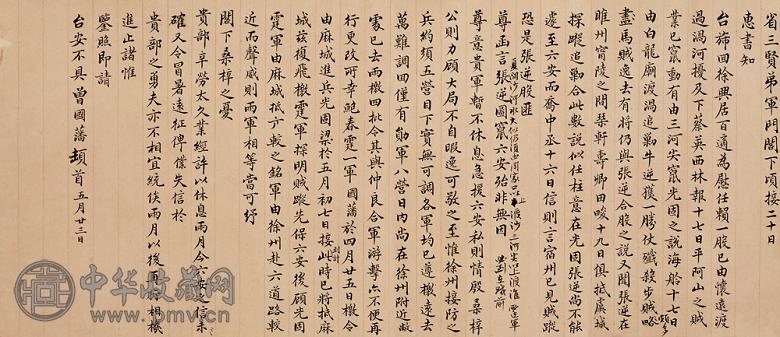 省三賢弟軍門閣下頃接二十日
惠書知
台旆回徐興居百適為慰任賴一股已由懷遠渡
過渦河擾及下蔡英西林報十七日平阿山之賊
業已竄動有由三河尖竄光固之說海舲十七日
由白龍廟渡渦追剿牛逆獲一勝仗殲殺步賊頗多
盡馬賊逸去有將仍與張逆合股之說又聞張逆在
睢州甯陵之間琹軒壽卿田畯十九日俱抵虞城
探蹤追剿合此數說似任柱意在光固張逆尚不能
遽至六安而喬中丞十六日信則言宿州已見賊蹤
恐是張逆股匪
尊函言張逆圖竄六安殆非無因
尊意貴軍暫不休息急援六安私則情殷桑梓
公則力顧大局不自暇逸可敬之至惟徐州接防之
兵約須五營目下實無可調各軍均已遵檄遠去
萬難調回僅有勛軍八營日內尚在徐州附近敝
處已去兩檄四批令其與仲良合軍游擊亦不便再
行更改所幸鮑春霆一軍國藩於四月廿五日檄令
由麻城進兵光固梁於五月初七日接到此時已將抵麻
城茲復飛檄霆軍探明賊蹤先保六安後顧光固
霆軍由麻城抵六較之銘軍由徐州赴六道路較
近而聲威則兩軍相等當可紓
閣下桑梓之憂
貴部辛勞太久業經許以休息兩月今六安之信未
確又令冒暑遠征俾僕失信於
貴部之勇夫亦不相宜統俟兩月以後再行相機
進止諸惟
鑒照即請
台安不具 曾國藩頓首 五月廿三日
中华收藏网
www.pmv.cn